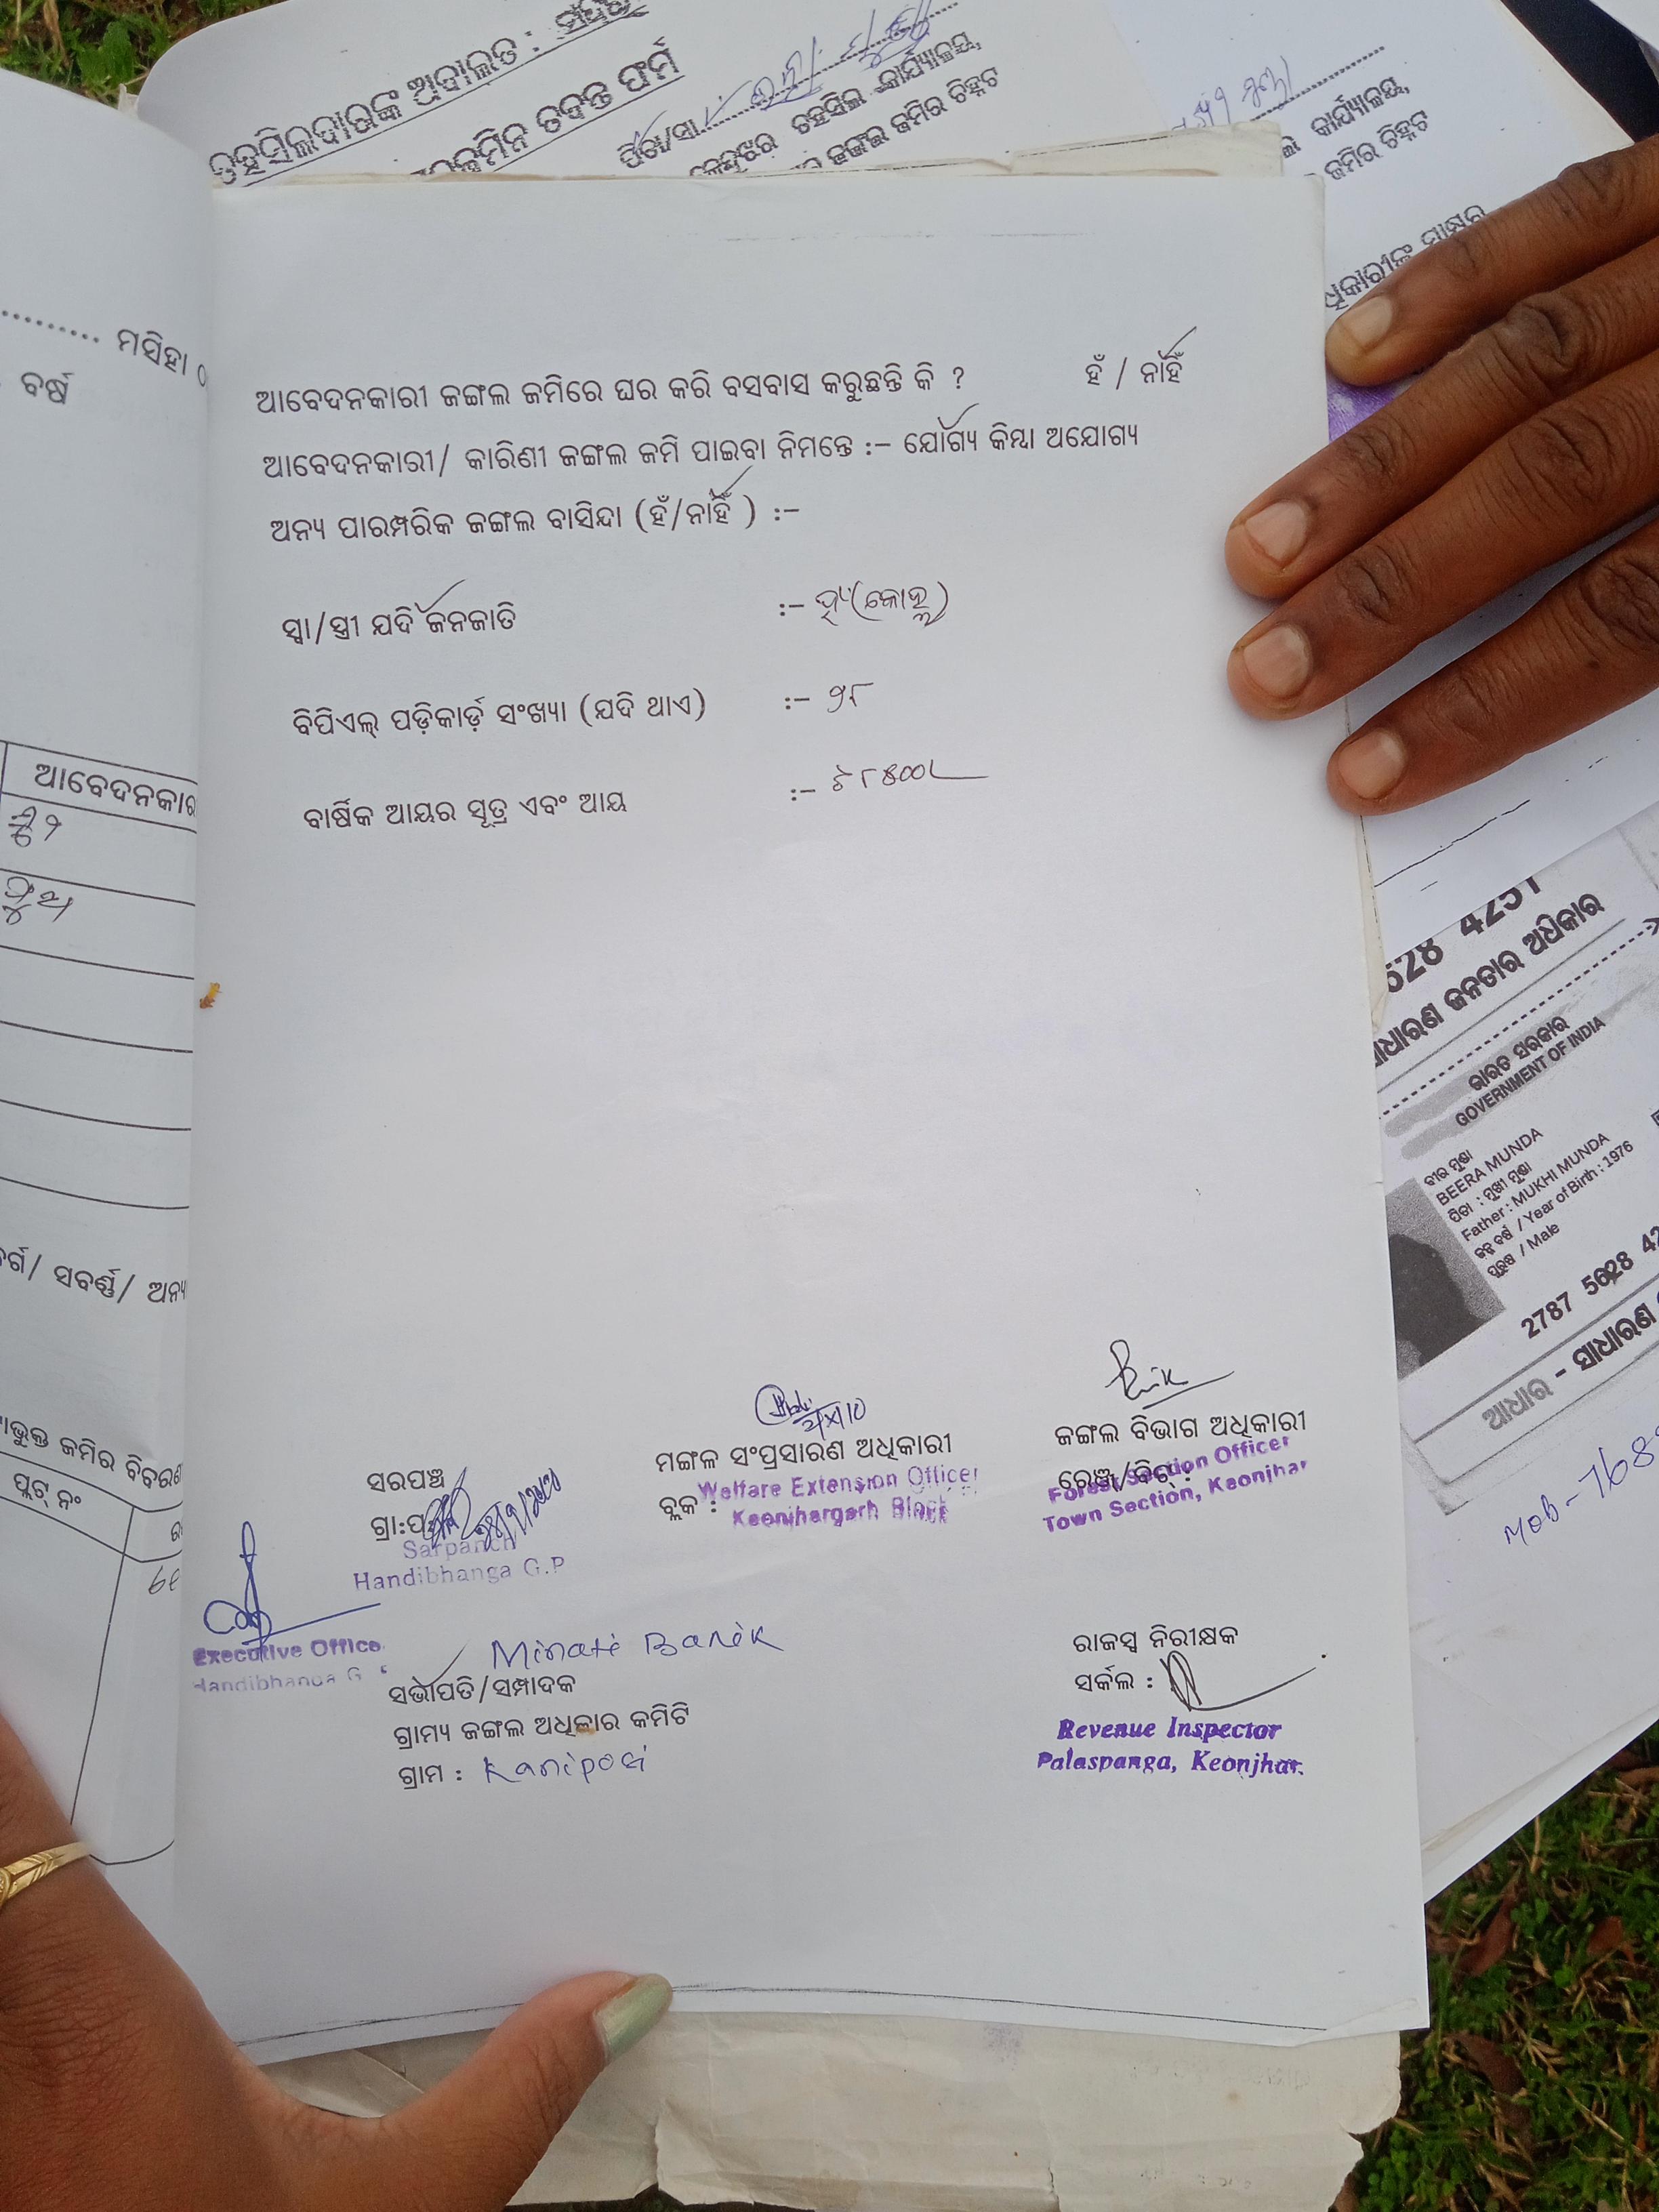 ତହସିଲଦାରଙ୍କ ଅଦାଲତ : ସଦର
ତଦନ୍ତ ଫର୍ମ
ପିତା/ସ୍ୱା
କେନ୍ଦୁଝର ତହସିଲ କାର୍ଯ୍ୟାଳୟ,
ଜଙ୍ଗଲ ଜମିର ଚିହ୍ନଟ
କାର୍ଯ୍ୟାଳୟ,
ଜମିର ଚିହ୍ନଟ
ମସିହା
ବର୍ଷ
ଆବେଦନକାରୀ ଜଙ୍ଗଲ ଜମିରେ ଘର କରି ବସବାସ କରୁଛନ୍ତି କି ? ହଁ / ନାହିଁ
ଆବେଦନକାରୀ/ କାରିଣୀ ଜଙ୍ଗଲ ଜମି ପାଇବା ନିମନ୍ତେ :– ଯୋଗ୍ୟ କିମ୍ବା ଅଯୋଗ୍ୟ
ଅନ୍ୟ ପାରମ୍ପରିକ ଜଙ୍ଗଲ ବାସିନ୍ଦା (ହଁ/ନାହିଁ ) :–
ସ୍ୱା/ସ୍ତ୍ରୀ ଯଦି ଜନଜାତି :– ହଁ (କୋହ୍ଲ)
ବିପିଏଲ୍ ପଡ଼ିକାର୍ଡ଼ ସଂଖ୍ୟା (ଯଦି ଥାଏ) :– ୨୮
ବାର୍ଷିକ ଆୟର ସୂତ୍ର ଏବଂ ଆୟ :–
ସବର୍ଣ୍ଣ/ ଅନ୍ୟ
ଜମିର ବିବରଣ
ପ୍ଲଟ୍ ନଂ
ସରପଞ୍ଚ
Sarpanch
Handibhanga G.P
ମଙ୍ଗଳ ସଂପ୍ରସାରଣ ଅଧିକାରୀ
ବ୍ଲକ :
Welfare Extension Officer
Keonjhargarh Block
ଜଙ୍ଗଲ ବିଭାଗ ଅଧିକାରୀ
ରେଞ୍ଜ/ବିଟ୍ :
Forest Section Officer
Town Section, Keonjhar
Executive Office
Handibhanga G. P
Minati Barik
ସଭାପତି/ସମ୍ପାଦକ
ଗ୍ରାମ୍ୟ ଜଙ୍ଗଲ ଅଧିକାର କମିଟି
ଗ୍ରାମ : Raniposi
ରାଜସ୍ୱ ନିରୀକ୍ଷକ
ସର୍କଲ :
Revenue Inspector
Palaspanga, Keonjhar.
ସାଧାରଣ ଜନତାର ଅଧିକାର
ଭାରତ ସରକାର
GOVERNMENT OF INDIA
ବୀର ମୁଣ୍ଡା
BEERA MUNDA
ପିତା : ମୁଖୀ ମୁଣ୍ଡା
Father : MUKHI MUNDA
ଜନ୍ମ ବର୍ଷ / Year of Birth : 1976
ପୁରୁଷ / Male
2787 5628 42
ଆଧାର – ସାଧାରଣ
Mob - 768